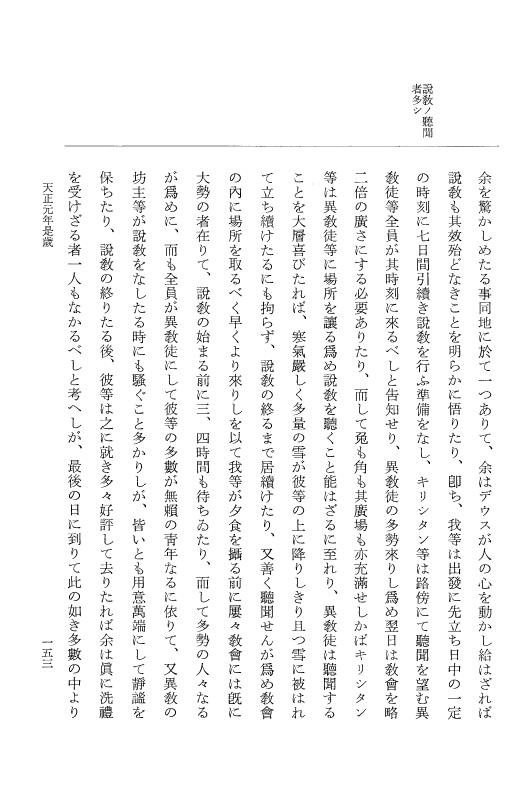 說敎ノ聽聞
者多シ
余を驚かしめたる事同地に於て一つありて、余はデウスが人の心を動かし給はざれば
說敎も其效殆どなきことを明らかに悟りたり、卽ち、我等は出發に先立ち日中の一定
の時刻に七日間引續き說敎を行ふ準備をなし、キリシタン等は路傍にて聽聞を望む異
敎徒等全員が其時刻に來るべしと告知せり、異敎徒の多勢來りし爲め翌日は敎會を略
二倍の廣さにする必要ありたり、而して兎も角も其廣場も亦充滿せしかばキリシタン
等は異敎徒等に場所を讓る爲め說敎を聽くこと能はざるに至れり、異敎徒は聽聞する
ことを大層喜びたれば、寒氣嚴しく多量の雪が彼等の上に降りしきり且つ雪に被はれ
て立ち續けたるにも拘らず、說敎の終るまで居續けたり、又善く聽聞せんが爲め敎會
の內に場所を取るべく早くより來りしを以て我等が夕食を攝る前に屢々敎會には旣に
大勢の者在りて、說敎の始まる前に三、四時間も待ちゐたり、而して多勢の人々なる
が爲めに、而も全員が異敎徒にして彼等の多數が無賴の靑年なるに依りて、又異敎の
坊主等が說敎をなしたる時にも騷ぐこと多かりしが、皆いとも用意萬端にして靜謐を
保ちたり、說敎の終りたる後、彼等は之に就き多々好評して去りたれば余は眞に洗禮
を受けざる者一人もなかるべしと考へしが、最後の日に到りて此の如き多數の中より
天正元年是歲
一五三